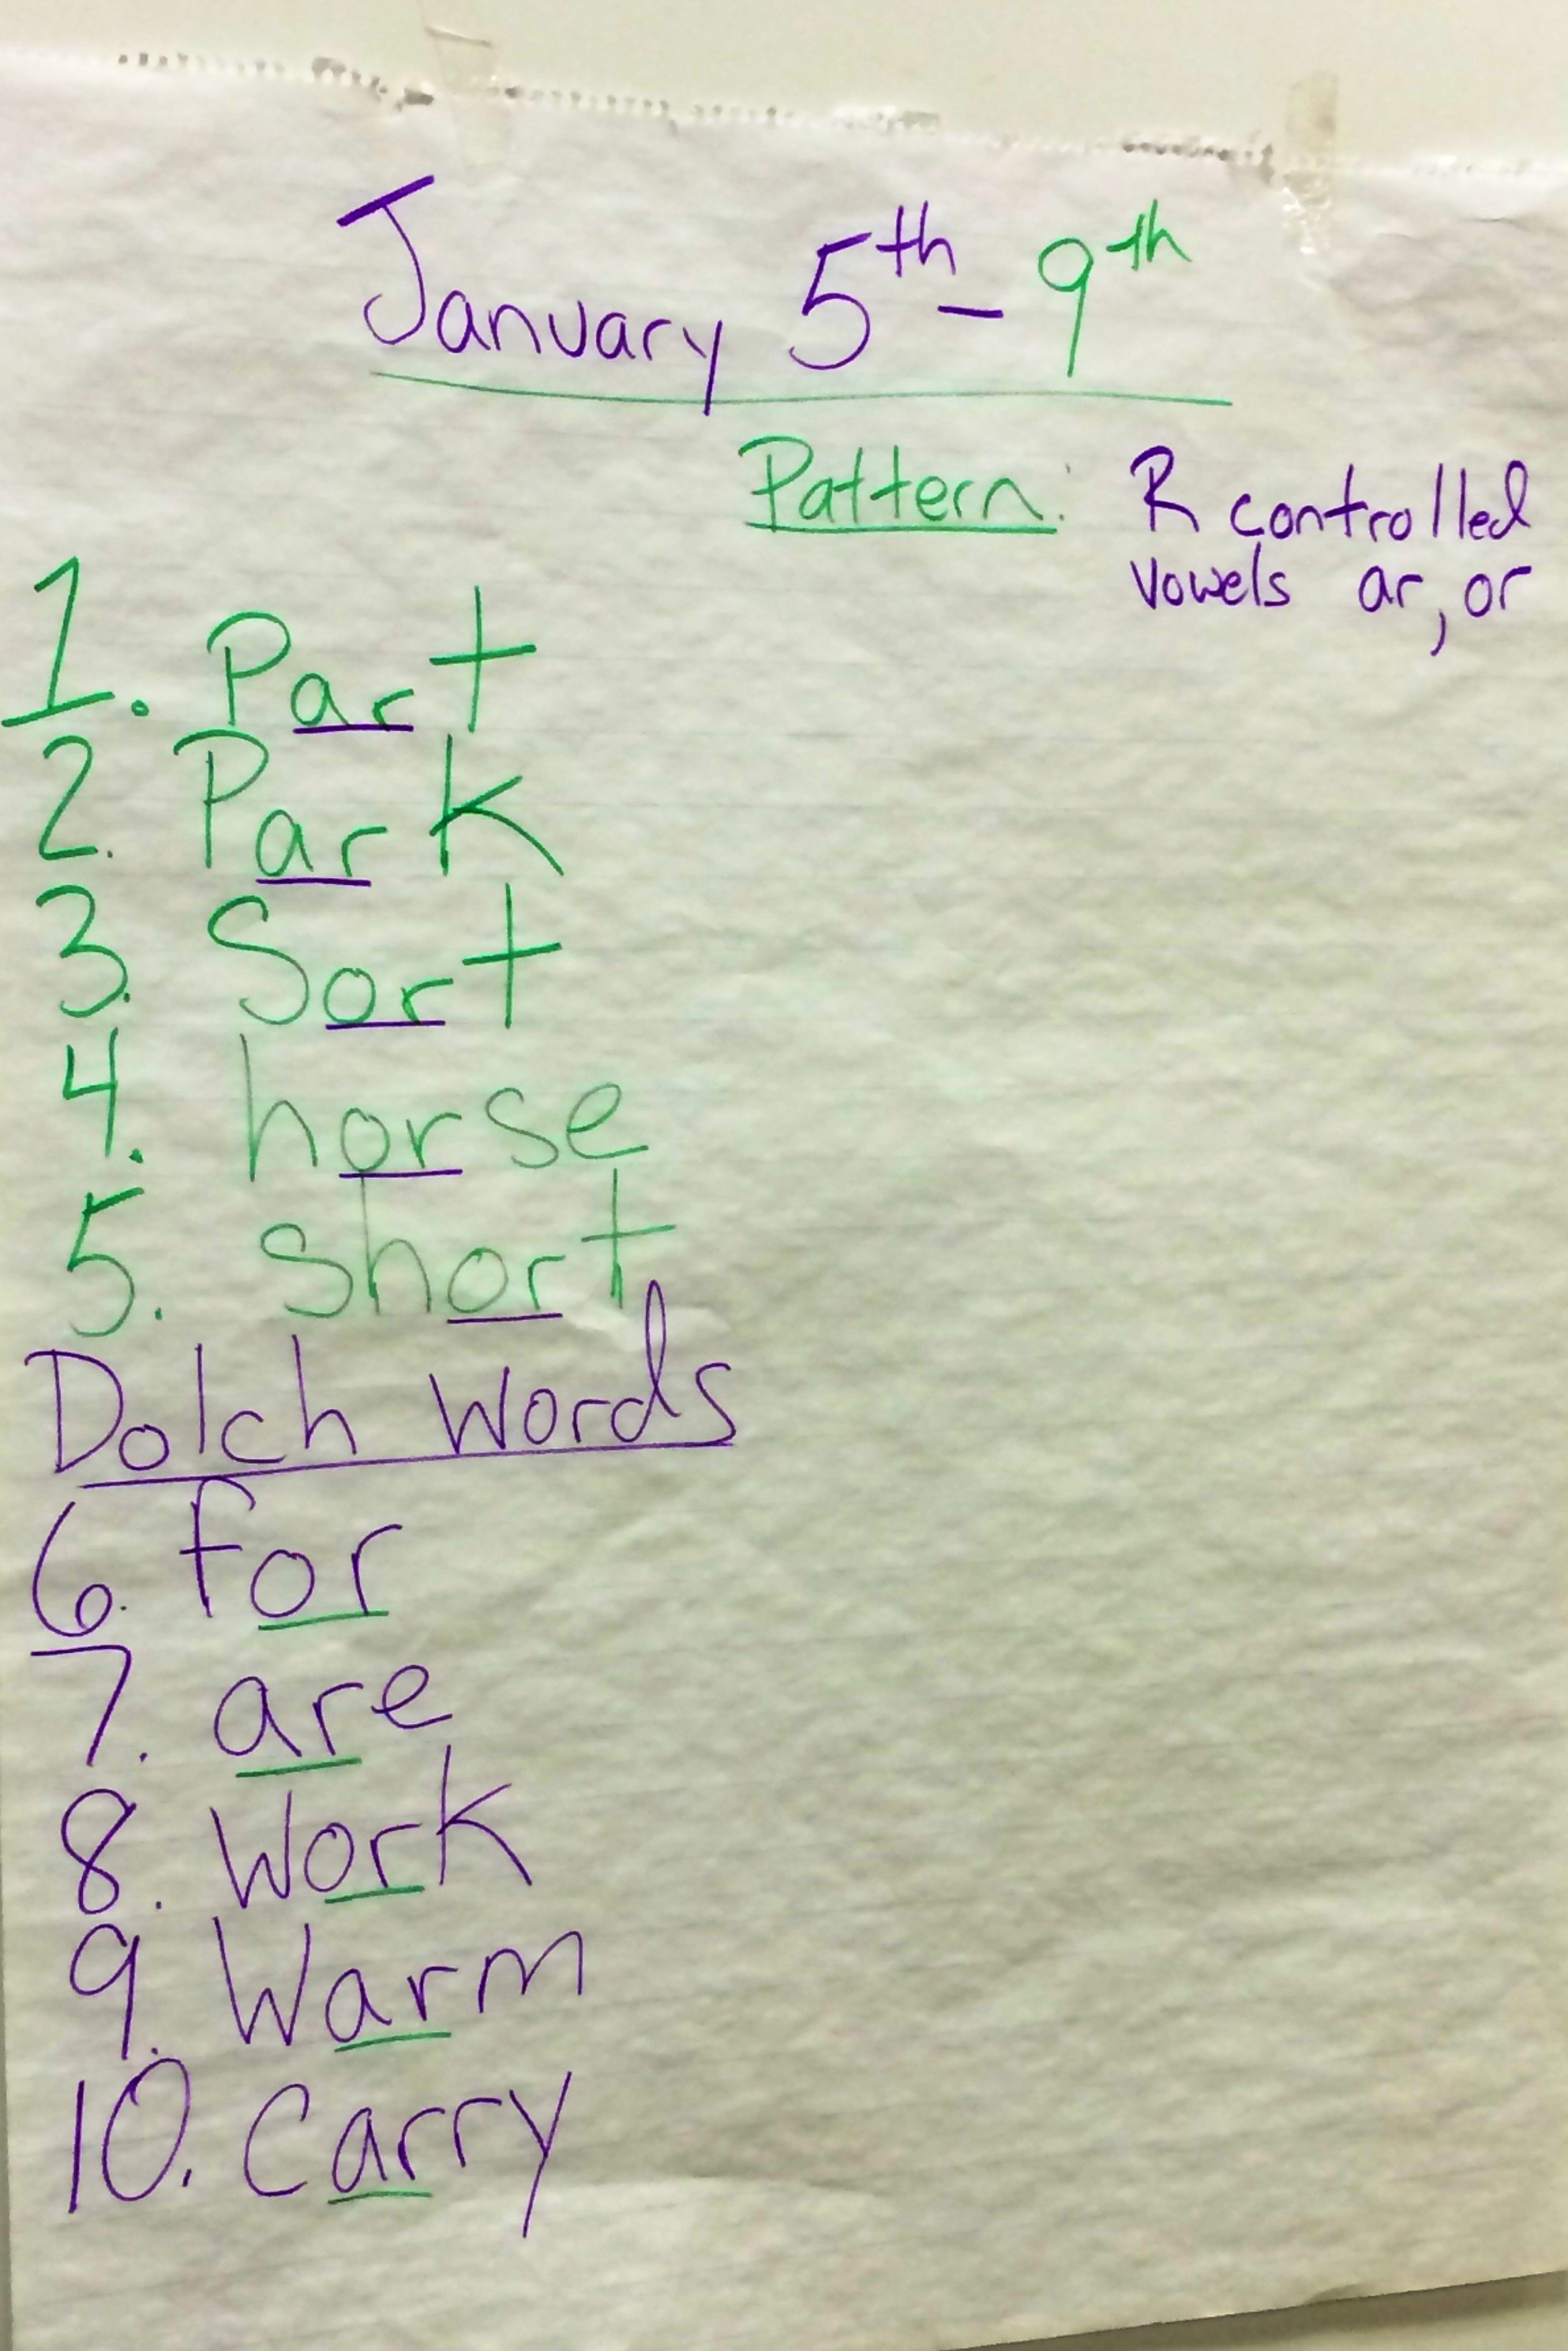 January 5th - 9th
Pattern: R controlled
vowels ar, or
1. Part
2. Park
3. Sort
4. horse
5. short
Dolch Words
6. for
7. are
8. Work
9. Warm
10. Carry